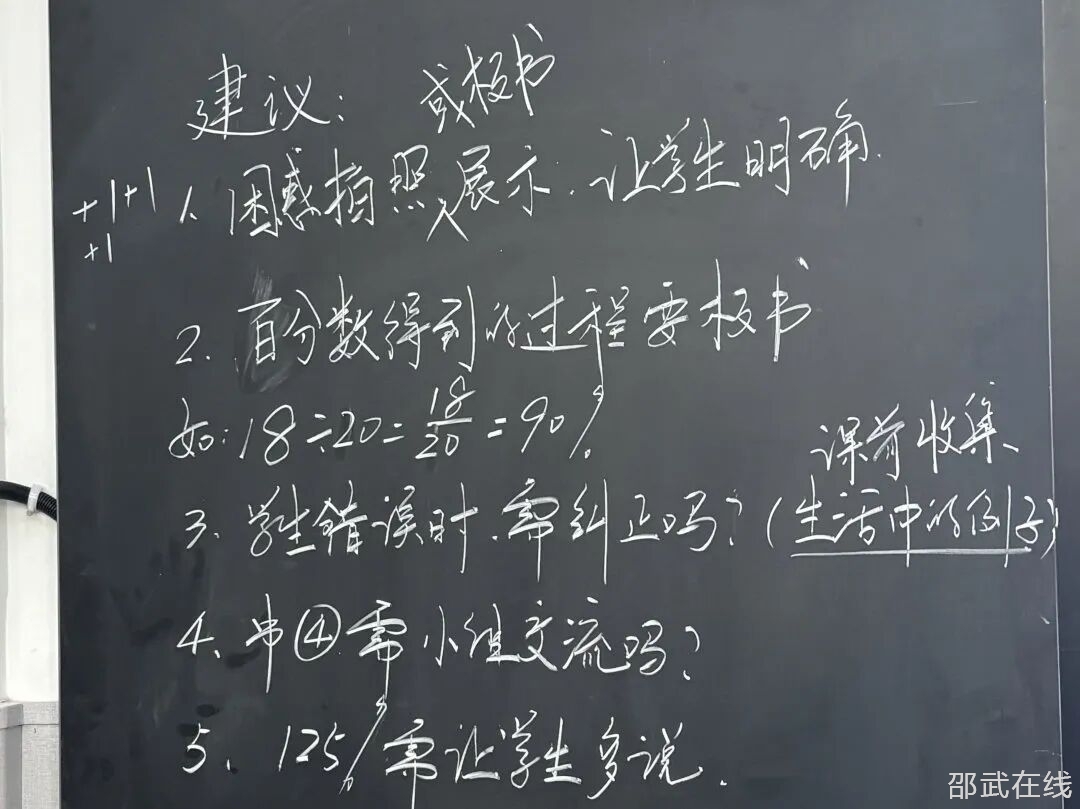 建议： 或板书
+1+1 1、困惑拍照展示．让学生明确．
+1
2．百分数得到的过程要板书
如：18÷20=18/20=90%
课前收集
3．学生错误时．需纠正吗？（生活中的例子）
4、串④需小组交流吗？
5、125%需让学生多说．
邵武在线